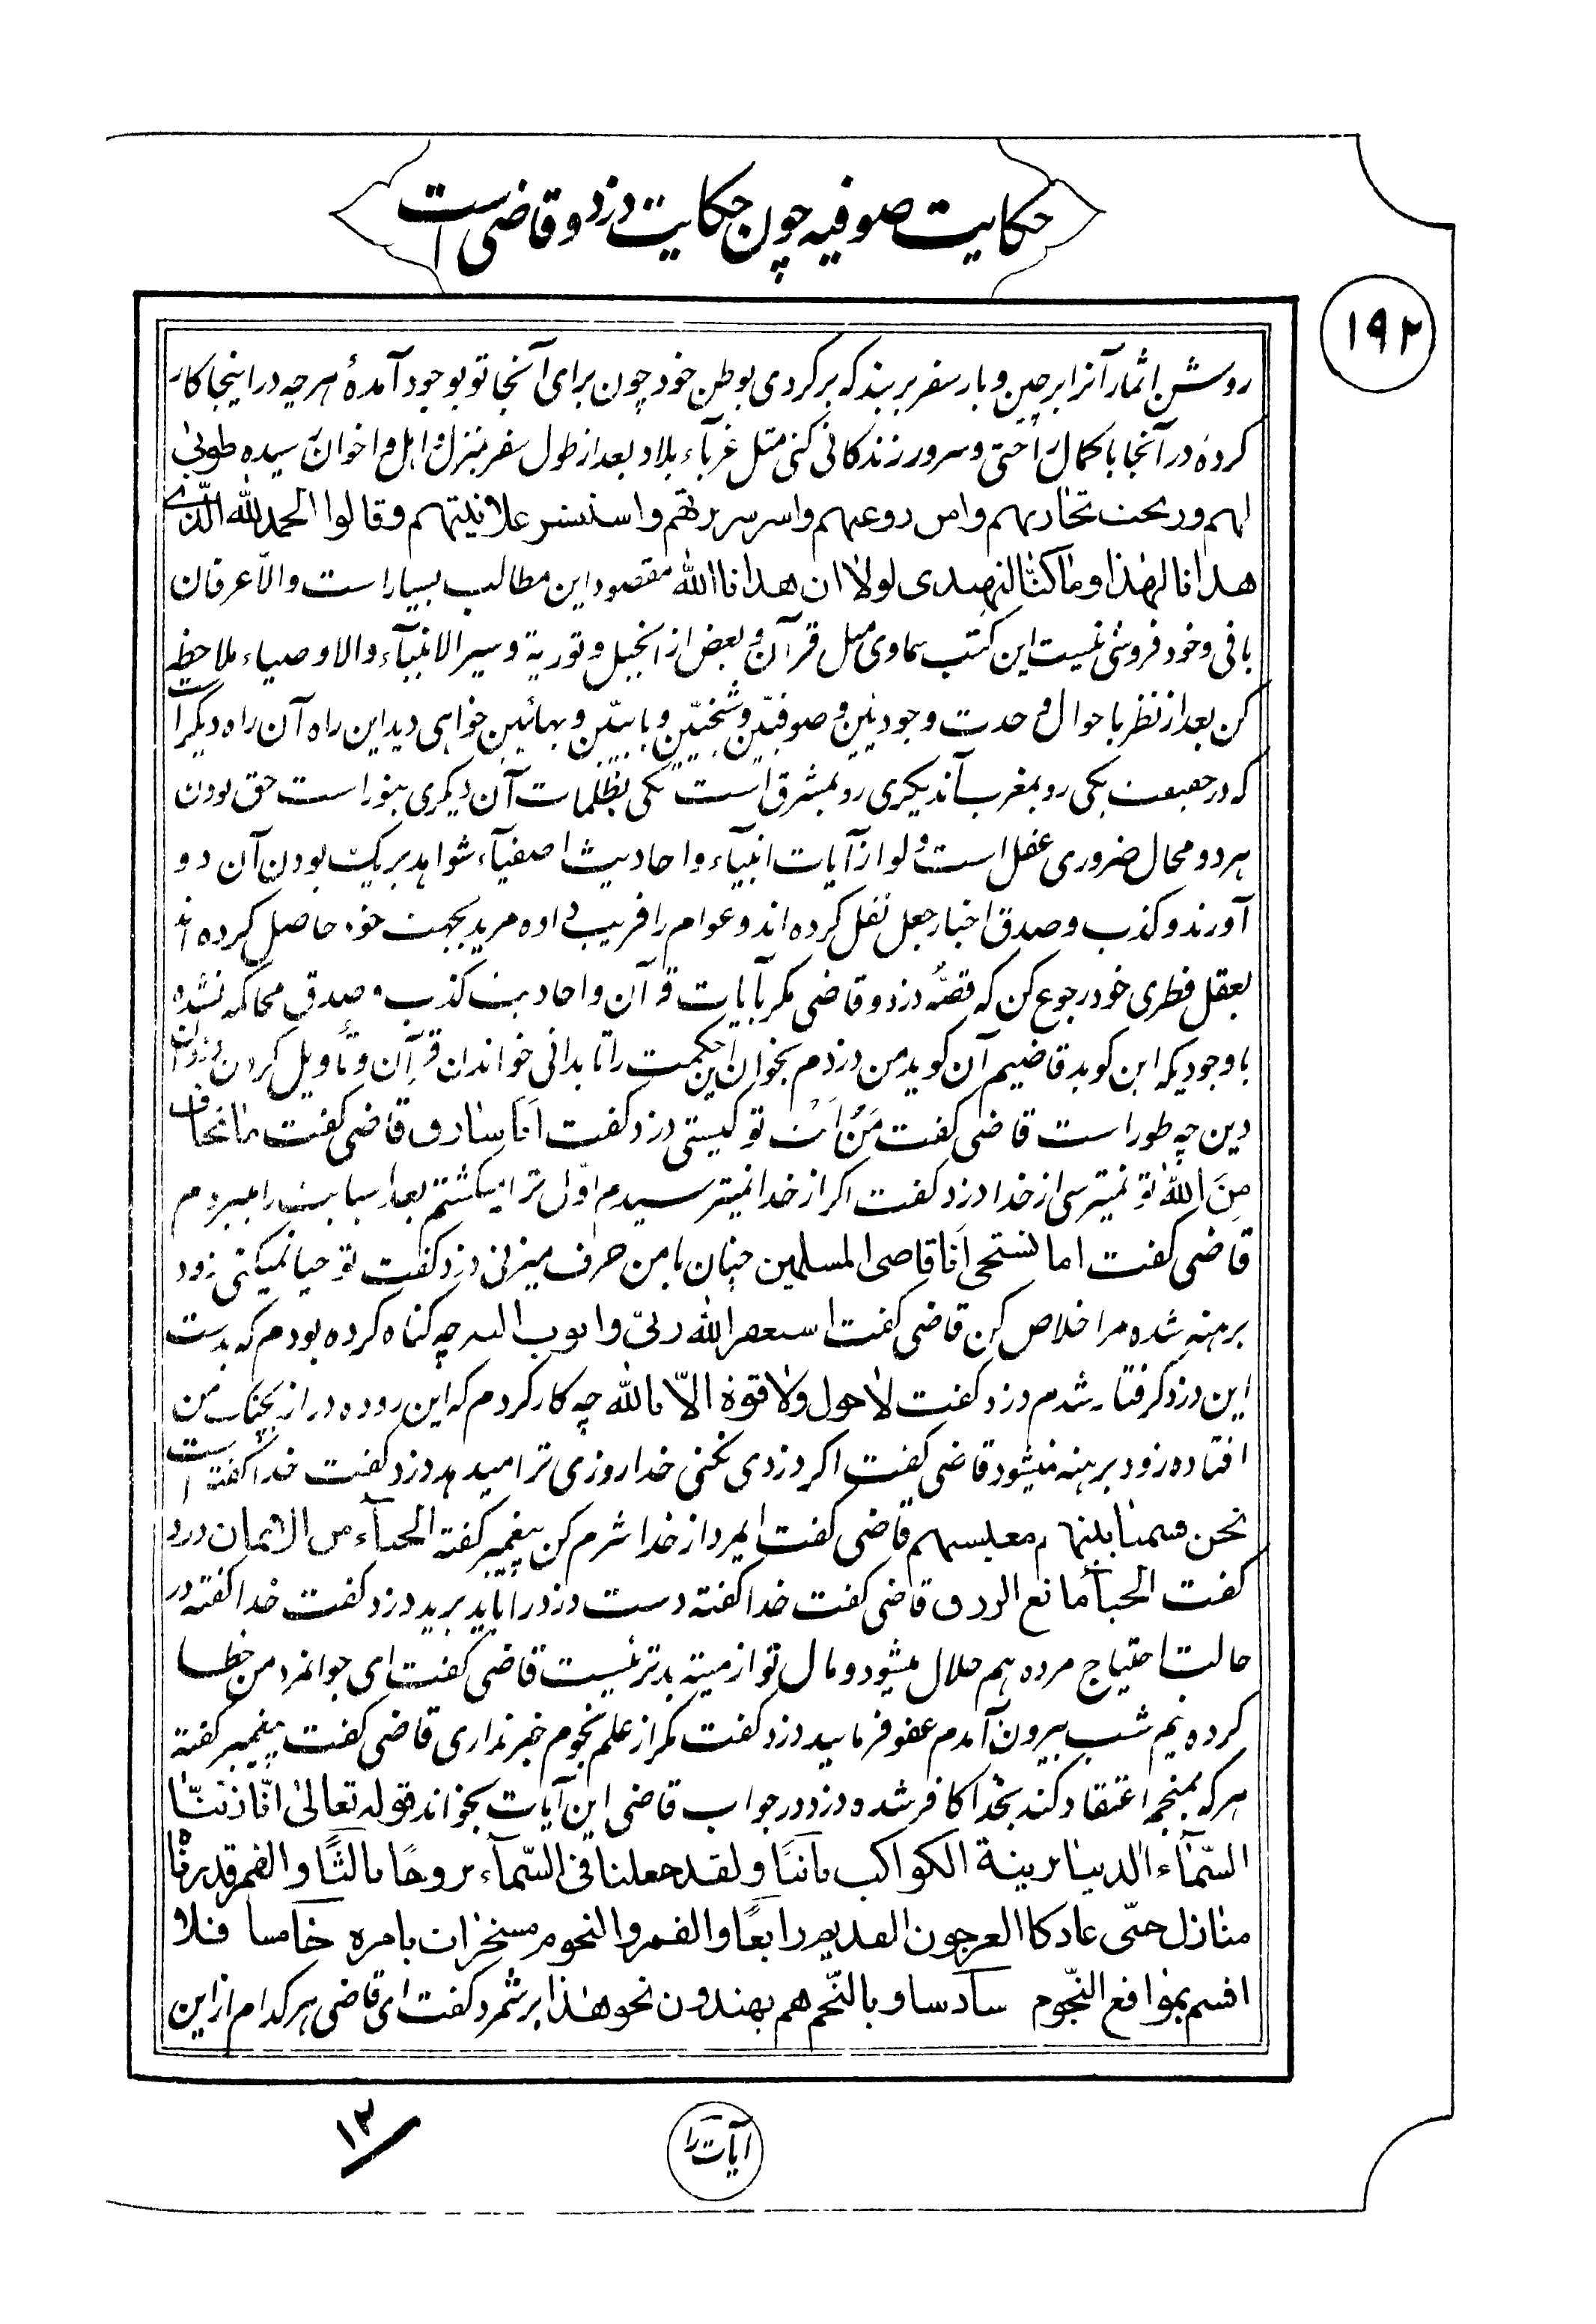 حکایت صوفیه چون حکایت دزد و قاضی است
۱۹۲
روشن اثمار آنرا برچین و بار سفر بربند که برگردی بوطن خود چون برای آنجا تو بوجود آمدهٔ هرچه در اینجا کار
کردهٔ در آنجا با کمال راحتی و سرور زندکانی کنی مثل غرباء بلاد بعد از طول سفر بمنزل و اهل و اخوان رسیده طوبی
لهم و ربحت تجارتهم وامن روعهم واسر سریرتهم و استبشر علانیتهم وقالوا الحمد لله الّذی
هدانا لهذا وما کنّا لنهتدی لولا ان هدانا الله مقصود این مطالب بسیار است والّا عرفان
بافی و خود فروشی نیست این کتب سماوی مثل قرآن و بعض از انجیل و توریة و سیر الانبیآء والاوصیاء ملاحظه
کن بعد از نظر باحوال وحدت وجودیّین و صوفیّین و شیخیّین و بابیّین و بهائیین خواهی دید این راه آن راه دیگر است
که در حقیقت یکی رو بمغرب آندیکری رو بمشرق است یکی بظلمات آن دیگری بنور است حق بودن
هر دو محال ضروری عقل است ولو از آیات انبیآء و احادیث اصفیآء شواهد بر یکی بودن آن دو
آورند و کذب و صدق اخبار جعل نقل کرده اند و عوام را فریب داده مرید بجهت خود حاصل کرده اند
بعقل فطری خود رجوع کن که قصّه دزد و قاضی مکر بآیات قرآن و احادیث کذب و صدق محاکمه نشده
با وجودیکه این کوید قاضیم آن کوید من دزدم بخوان این حکمت را تا بدانی خواندن قرآن و تأویل کردن دزدان
دین چه طور است قاضی کفت مَنْ اَنْتَ تو کیستی دزد کفت اَنَا سارق قاضی کفت ما تخاف
مِنَ اللّٰه تو نمیترسی از خدا دزد کفت اکر از خدا نمیترسیدم اوّل ترا میکشتم بعد اسبابت را میبردم
قاضی کفت اما تستحی اَنا قاضی المسلمین چنان با من حرف میزنی دزد کفت تو حیا نمیکنی زود
برهنه شده مرا خلاص کن قاضی کفت استغفر الله ربّی و اتوب الیه چه کناه کرده بودم که بدست
این دزد کرفتار شدم دزد کفت لا حول ولا قوة الّا بالله چه کار کردم که این روده دراز بچنگ من
افتاده زود برهنه نمیشود قاضی کفت اکر دزدی نکنی خدا روزی ترا میدهد دزد کفت خدا کفته است
نحن قسمنا بینهم معیشتهم قاضی کفت ایمرد از خدا شرم کن پیغمبر کفته الحیآء من الایمان دزد
کفت الحیآء مانع الرزق قاضی کفت خدا کفته دست دزد را باید برید دزد کفت خدا کفته در
حالت احتیاج مرده هم حلال میشود و مال تو از میته بدتر نیست قاضی کفت ای جوانمرد من خطا
کرده نیم شب بیرون آمدم عفو فرمایید دزد کفت مکر از علم نجوم خبر نداری قاضی کفت پیغمبر کفته
هر که بمنجم اعتقاد کند بخدا کافر شده دزد در جواب قاضی این آیات بخواند قوله تعالیٰ انّا زیّنّا
السّمآء الدنیا بزینة الکواکب ثانیًا و لقد جعلنا فی السّمآء بروجًا ثالثًا والقمر قدرناه
منازل حتّی عاد کا العرجون القدیم رابعًا والقمر والنجوم مسخرات بامره خامسا فلا
اقسم بمواقع النّجوم سادسا و بالنّجم هم یهتدون نحو هذا برشمرد کفت ای قاضی هر کدام از این
آیات را
۱۲